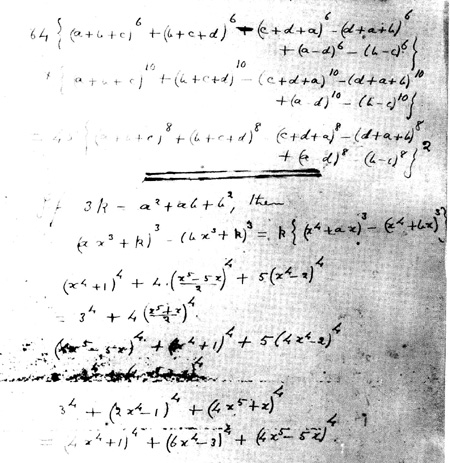 64{(a+b+c)⁶+(b+c+d)⁶-(c+d+a)⁶-(d+a+b)⁶
+(a-d)⁶-(b-c)⁶}
{(a+b+c)¹⁰+(b+c+d)¹⁰-(c+d+a)¹⁰-(d+a+b)¹⁰
+(a-d)¹⁰-(b-c)¹⁰}
= 45{(a+b+c)⁸+(b+c+d)⁸-(c+d+a)⁸-(d+a+b)⁸
+(a-d)⁸-(b-c)⁸}²
If 3k = a²+ab+b², then
(ax³+k)³-(bx³+k)³ = k{(x⁴+ax)³-(x⁴+bx)³}
(x⁴+1)⁴ + 4.((x⁵-5x)/2)⁴ + 5(x⁴-2)⁴
= 3⁴ + 4((x⁵+x)/2)⁴.
(4x⁵-5x)⁴ + (4x⁴+1)⁴ + 5(4x⁴-2)⁴
3⁴ + (2x⁴-1)⁴ + (4x⁵+x)⁴
= (4x⁴+1)⁴ + (6x⁴-3)⁴ + (4x⁵-5x)⁴.